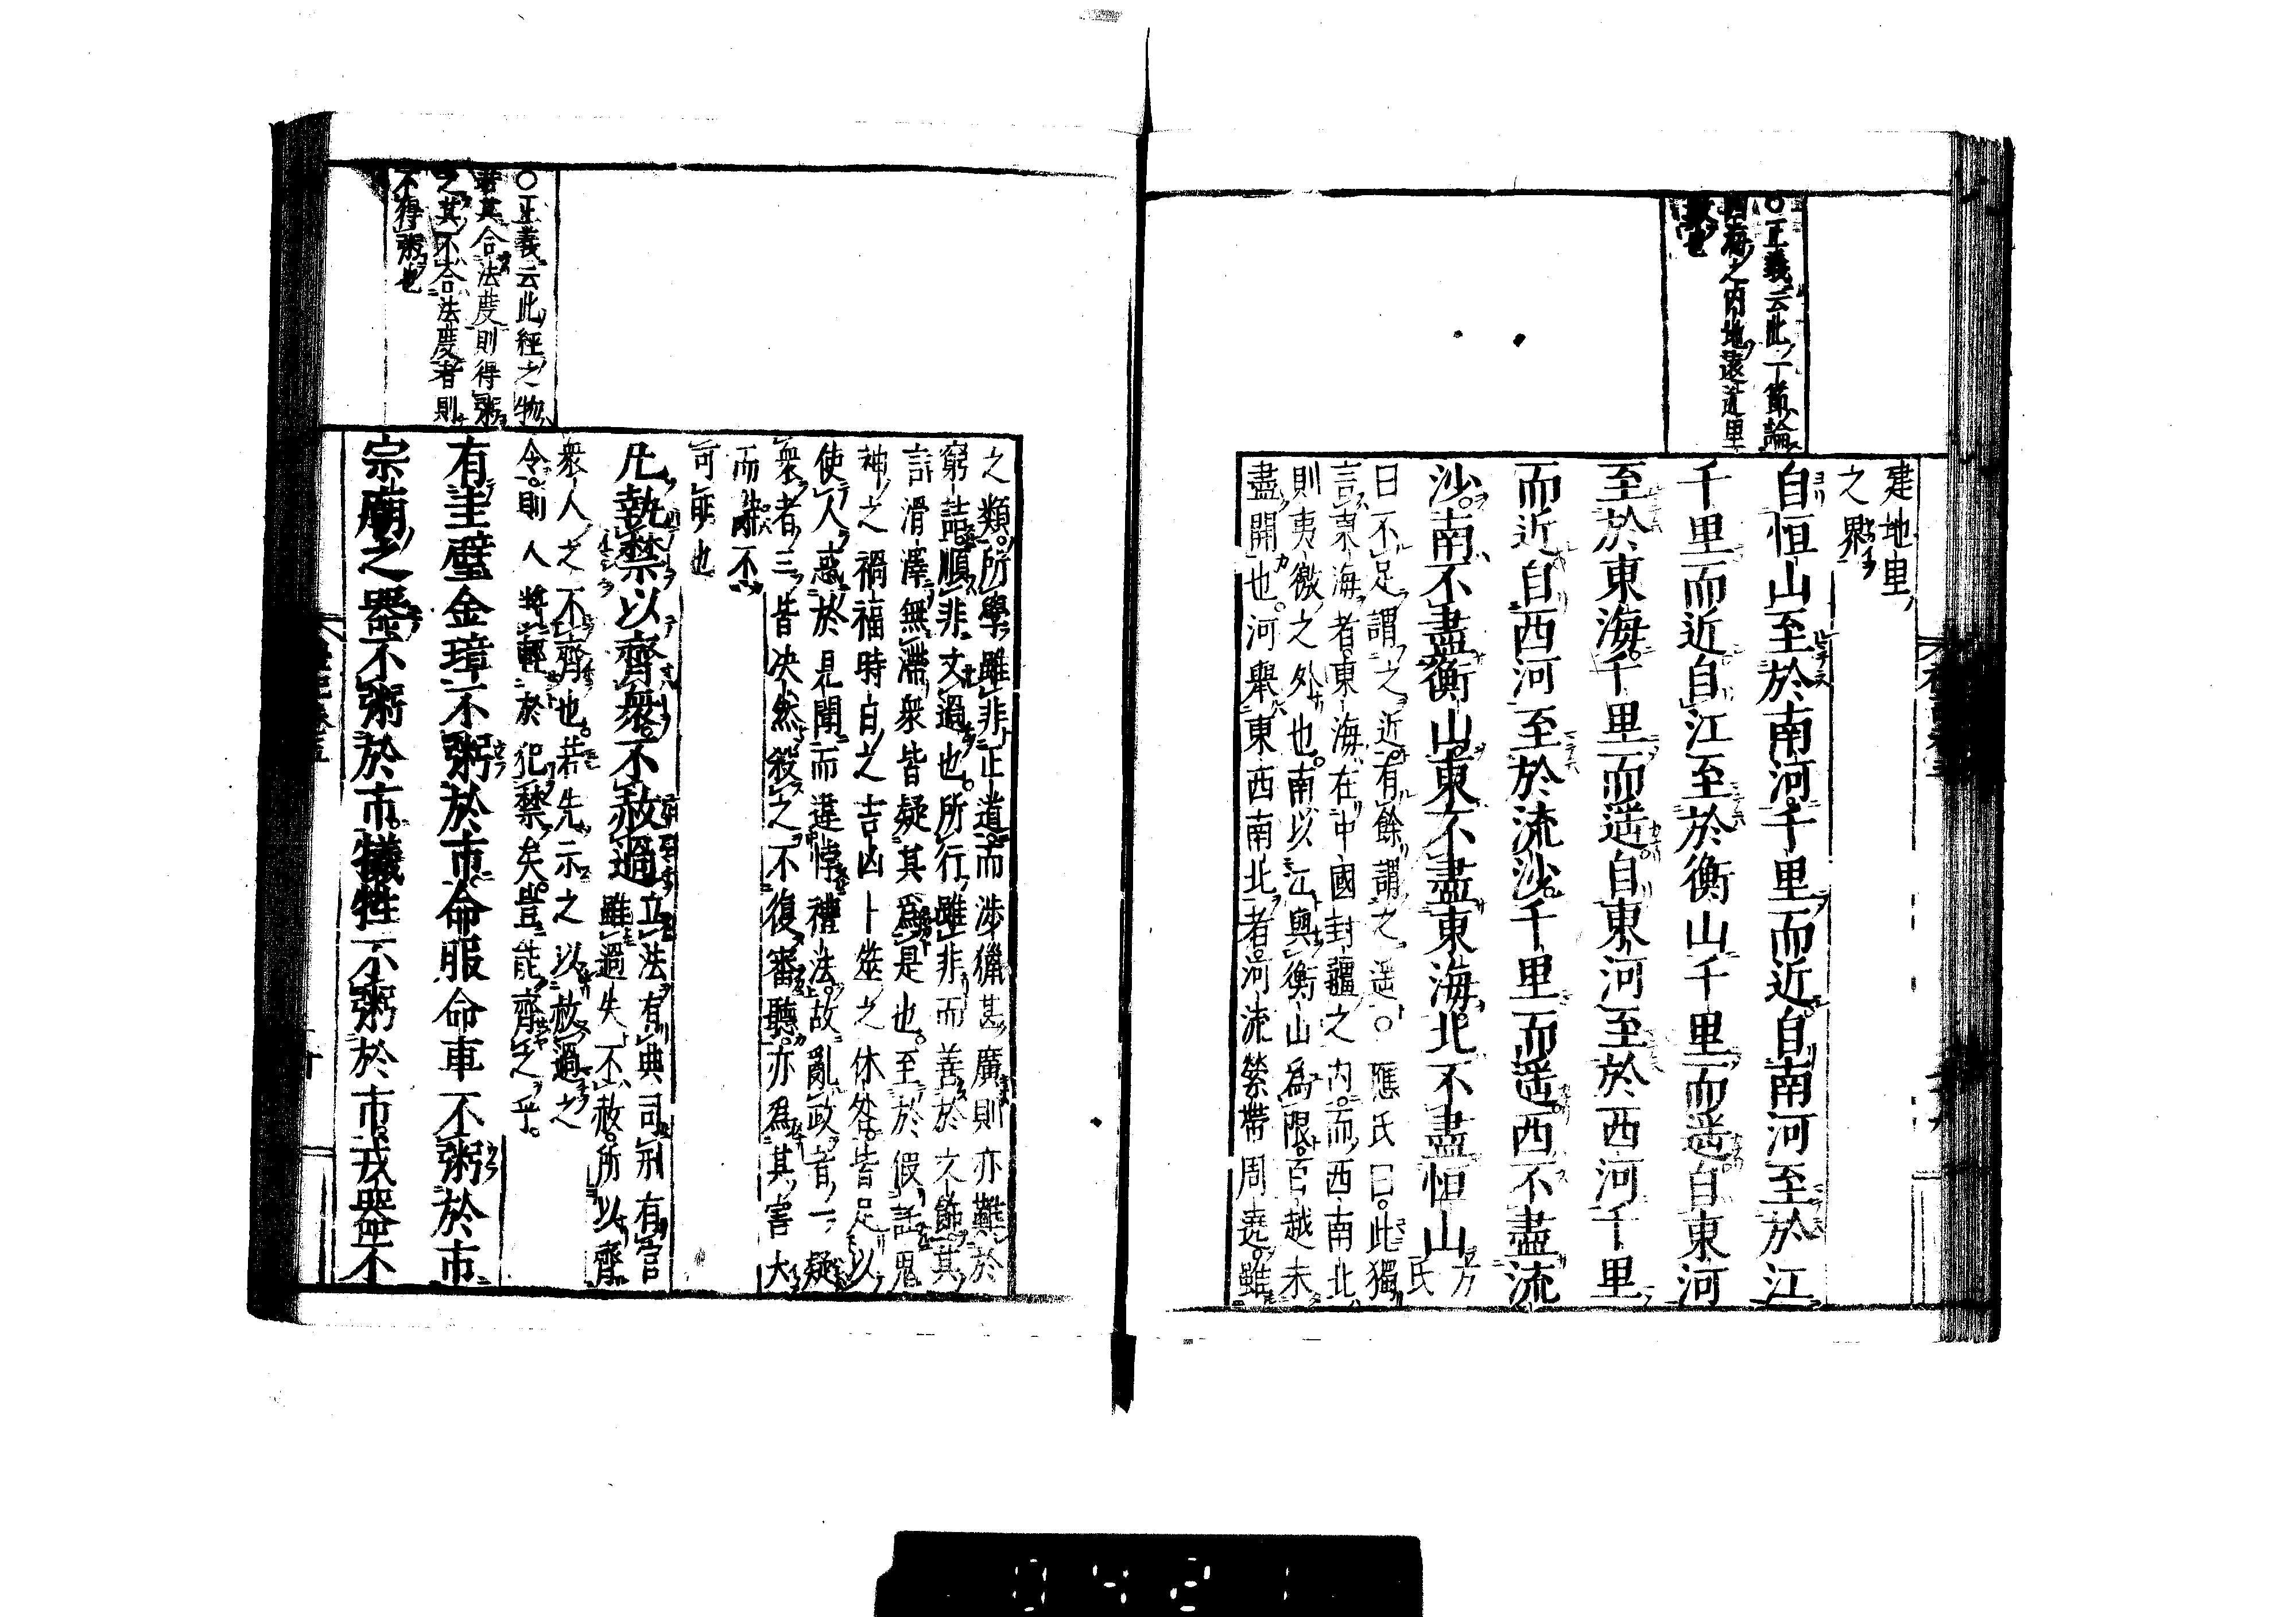 ○正義云此一節論
四海之內地遠近里
數也
建地里
之界
自恒山至於南河千里而近自南河至於江
千里而近自江至於衡山千里而遥自東河
至於東海千里而遥自東河至於西河千里
而近自西河至於流沙千里而遥西不盡流
沙南不盡衡山東不盡東海北不盡恒山
方
氏
曰不足謂之近有餘謂之遥○應氏曰此獨
言東海者東海在中國封疆之內而西南北
則夷徼之外也南以江與衡山爲限百越未
盡開也河舉東西南北者河流縈帶周遶雖
○正義云此經之物
若其合法度則得粥
之其不合法度者則
不得粥也
之類所學雖非正道而涉獵甚廣則亦難於
窮詰順非文過也所行雖非而善於文飾其
言滑澤無滯衆皆疑其爲是也至於假託鬼
神之禍福時日之吉凶卜筮之休咎皆足以
使人惑於見聞而違悖禮法故亂政者一疑
衆者三皆决然殺之不復審聽亦爲其害大
而辭不
可明也
凡執禁以齊衆不赦過
立法有典司刑有官
雖過失不赦所以齊
衆人之不齊也若先示之以赦過之
令則人將輕於犯禁矣豈能齊之乎
有圭璧金璋不粥於市命服命車不粥於市
宗廟之器不粥於市犧牲不粥於市戎器不